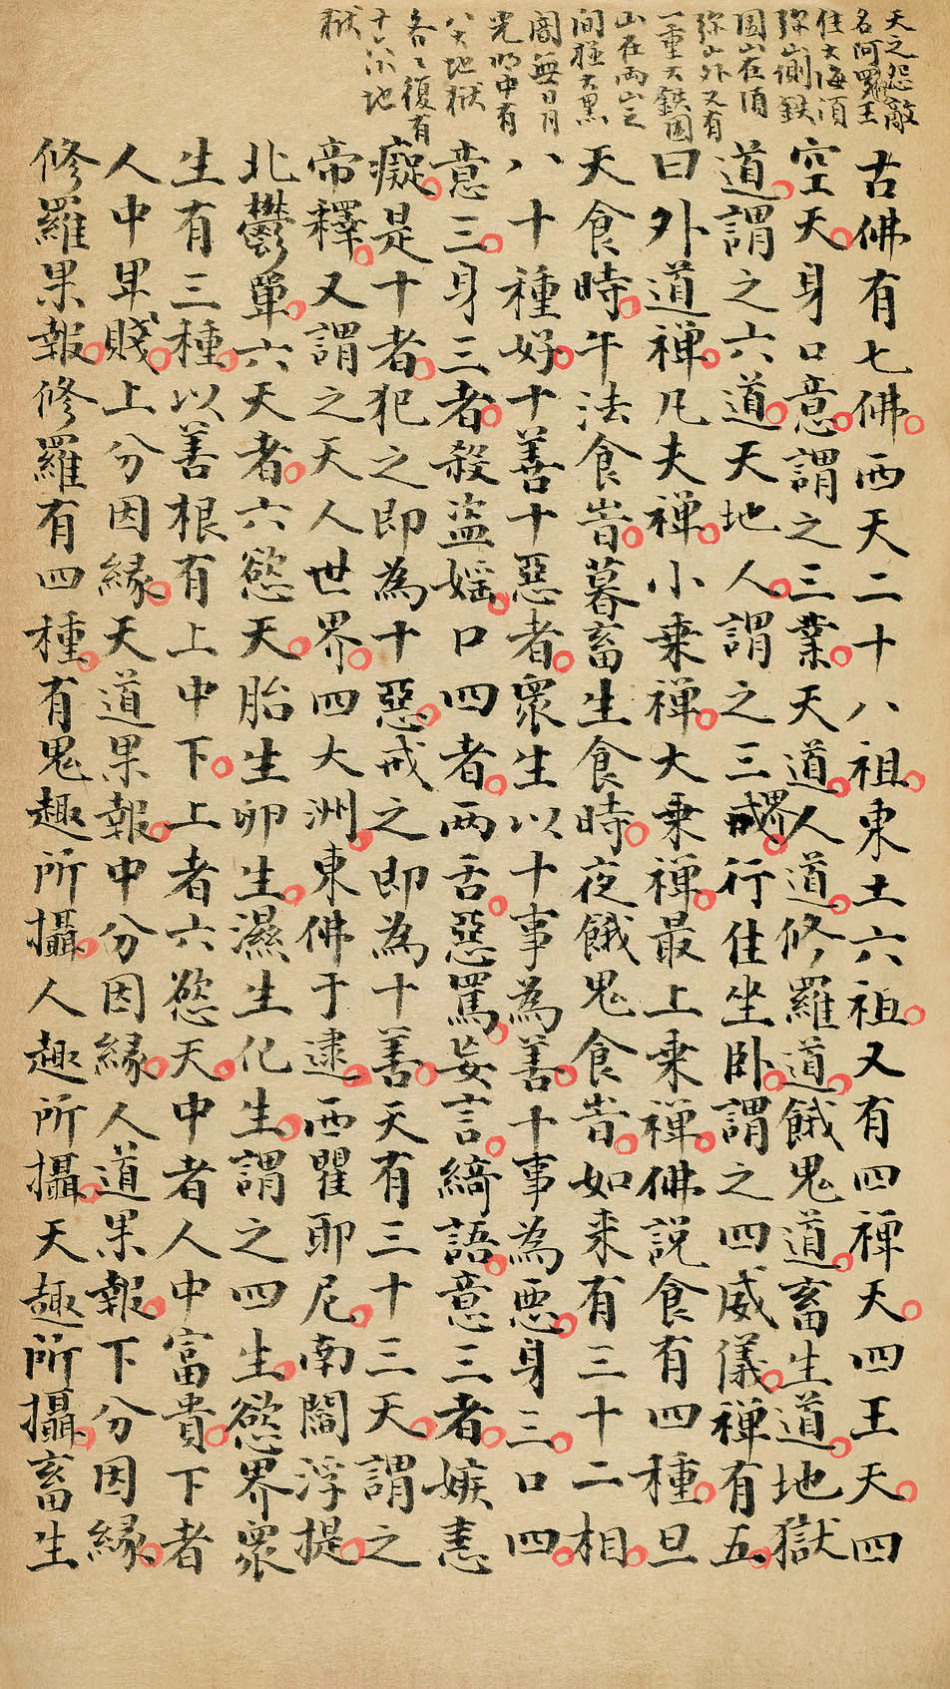 天之怨敵
名阿羅王
住大海須
弥山側鉄
圍山在須
弥山外又有
一重大鉄圍
山在兩山之
間極大黒
闇無日月
光明中有
八大地獄
各々復有
十六小地
獄
古佛有七佛。西天二十八祖。東土六祖。又有四禅天。四王天。四
空天。身口意。謂之三業。天道。人道。修羅道。餓鬼道。畜生道。地獄
道。謂之六道。天地人。謂之三界。行住坐卧。謂之四威儀。禅有五。
曰外道禅。凡夫禅。小乗禅。大乗禅。最上乗禅。佛説食有四種。旦
天食時。午法食旹。暮畜生食時。夜餓鬼食旹。如来有三十二相。
八十種好。十善十惡者。衆生以十事為善。十事為悪。身三。口四。
意三。身三者。殺盗婬。口四者。兩舌。惡罵。妄言。綺語。意三者。嫉恚
癡。是十者。犯之即為十惡。戒之即為十善。天有三十三天。謂之
帝釋。又謂之天人世界。四大洲。東佛于逮。西瞿耶尼。南閻浮提。
北鬱單。六天者。六慾天。胎生卵生。濕生化生。謂之四生。慾界衆
生有三種。以善根有上中下。上者六慾天。中者人中富貴。下者
人中卑賤。上分因縁。天道果報。中分因縁。人道果報。下分因縁。
修羅果報。修羅有四種。有鬼趣所攝。人趣所攝。天趣所攝。畜生